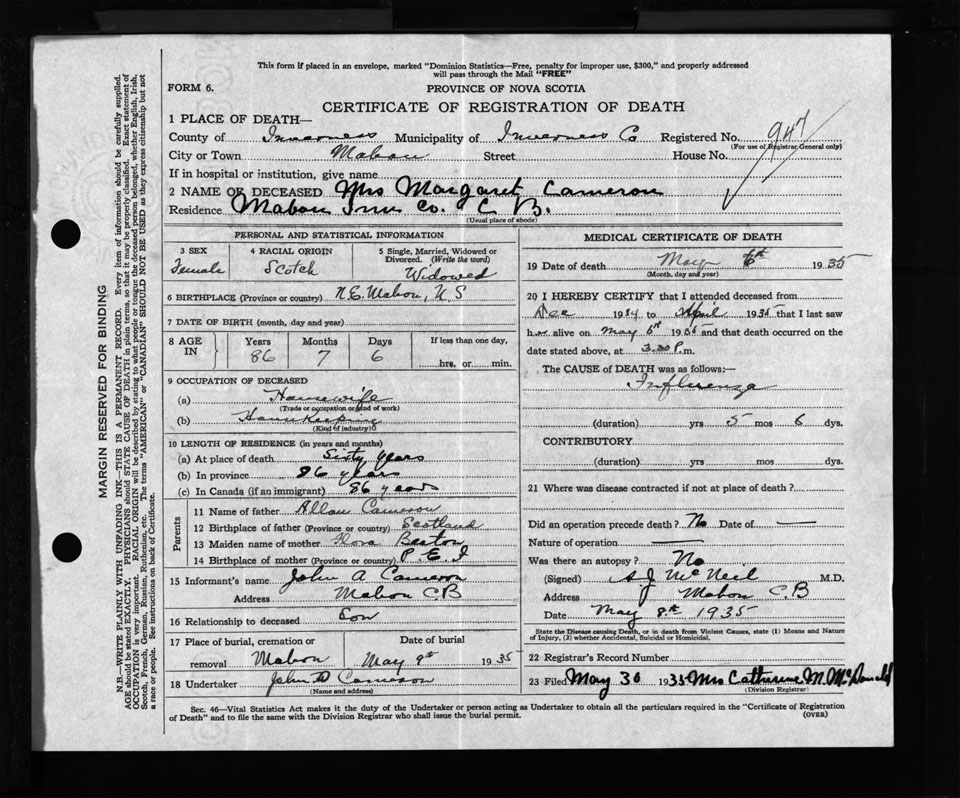 This form if placed in an envelope, marked "Dominion Statistics—Free, penalty for improper use, $300," and properly addressed
will pass through the Mail "FREE"
FORM 6.
PROVINCE OF NOVA SCOTIA
CERTIFICATE OF REGISTRATION OF DEATH
1 PLACE OF DEATH—
County of Inverness Municipality of Inverness Co Registered No. 947
(For use of Registrar General only)
City or Town Mabou Street House No.
If in hospital or institution, give name
2 NAME OF DECEASED Mrs Margaret Cameron
Residence Mabou Inv Co. C B.
(Usual place of abode)
PERSONAL AND STATISTICAL INFORMATION
3 SEX Female
4 RACIAL ORIGIN Scotch
5 Single, Married, Widowed or Divorced. (Write the word) Widowed
6 BIRTHPLACE (Province or country) N.E. Mabou, N S
7 DATE OF BIRTH (month, day and year)
8 AGE IN Years 86 Months 7 Days 6 If less than one day, hrs. or min.
9 OCCUPATION OF DECEASED
(a) Housewife
(Trade or occupation or kind of work)
(b) Housekeeping
(Kind of industry)
10 LENGTH OF RESIDENCE (in years and months)
(a) At place of death Sixty years
(b) In province 86 years
(c) In Canada (if an immigrant) 86 years
Parents
11 Name of father Allan Cameron
12 Birthplace of father (Province or country) Scotland
13 Maiden name of mother Flora Beaton
14 Birthplace of mother (Province or country) P. E. I
15 Informant's name John A Cameron
Address Mabou C B
16 Relationship to deceased Son
17 Place of burial, cremation or removal Mabou
Date of burial May 9th 1935
18 Undertaker John D Cameron
(Name and address)
MEDICAL CERTIFICATE OF DEATH
19 Date of death May 6th 1935
(Month, day and year)
20 I HEREBY CERTIFY that I attended deceased from
Dec 1934 to April 1935 that I last saw
her alive on May 6th 1935 and that death occurred on
date stated above, at 3.30 P.m.
The CAUSE of DEATH was as follows:—
Influenza
(duration) yrs 5 mos 6 dys.
CONTRIBUTORY
(duration) yrs mos dys.
21 Where was disease contracted if not at place of death?
Did an operation precede death? No Date of —
Nature of operation —
Was there an autopsy? No
(Signed) A J McNeil M.D.
Address Mabou C.B
Date May 8th 1935
State the Disease causing Death, or in death from Violent Causes, state (1) Means and Nature
of Injury, (2) whether Accidental, Suicidal or Homicidal.
22 Registrar's Record Number
23 Filed May 30 1935 Mrs Catherine M. McDonald
(Division Registrar)
Sec. 46—Vital Statistics Act makes it the duty of the Undertaker or person acting as Undertaker to obtain all the particulars required in the "Certificate of Registration
of Death" and to file the same with the Division Registrar who shall issue the burial permit.
(OVER)
MARGIN RESERVED FOR BINDING
N.B.—WRITE PLAINLY WITH UNFADING INK—THIS IS A PERMANENT RECORD. Every item of information should be carefully supplied.
AGE should be stated EXACTLY. PHYSICIANS should STATE CAUSE OF DEATH in plain terms, so that it may be properly classified. Exact statement of
OCCUPATION is very important. RACIAL ORIGIN will be described by stating to what people or tongue the deceased person belonged, whether English, Irish,
Scotch, French, German, Russian, Ruthenian, etc. The terms "AMERICAN" or "CANADIAN" SHOULD NOT BE USED as they express citizenship but not
a race or people. See instructions on back of Certificate.